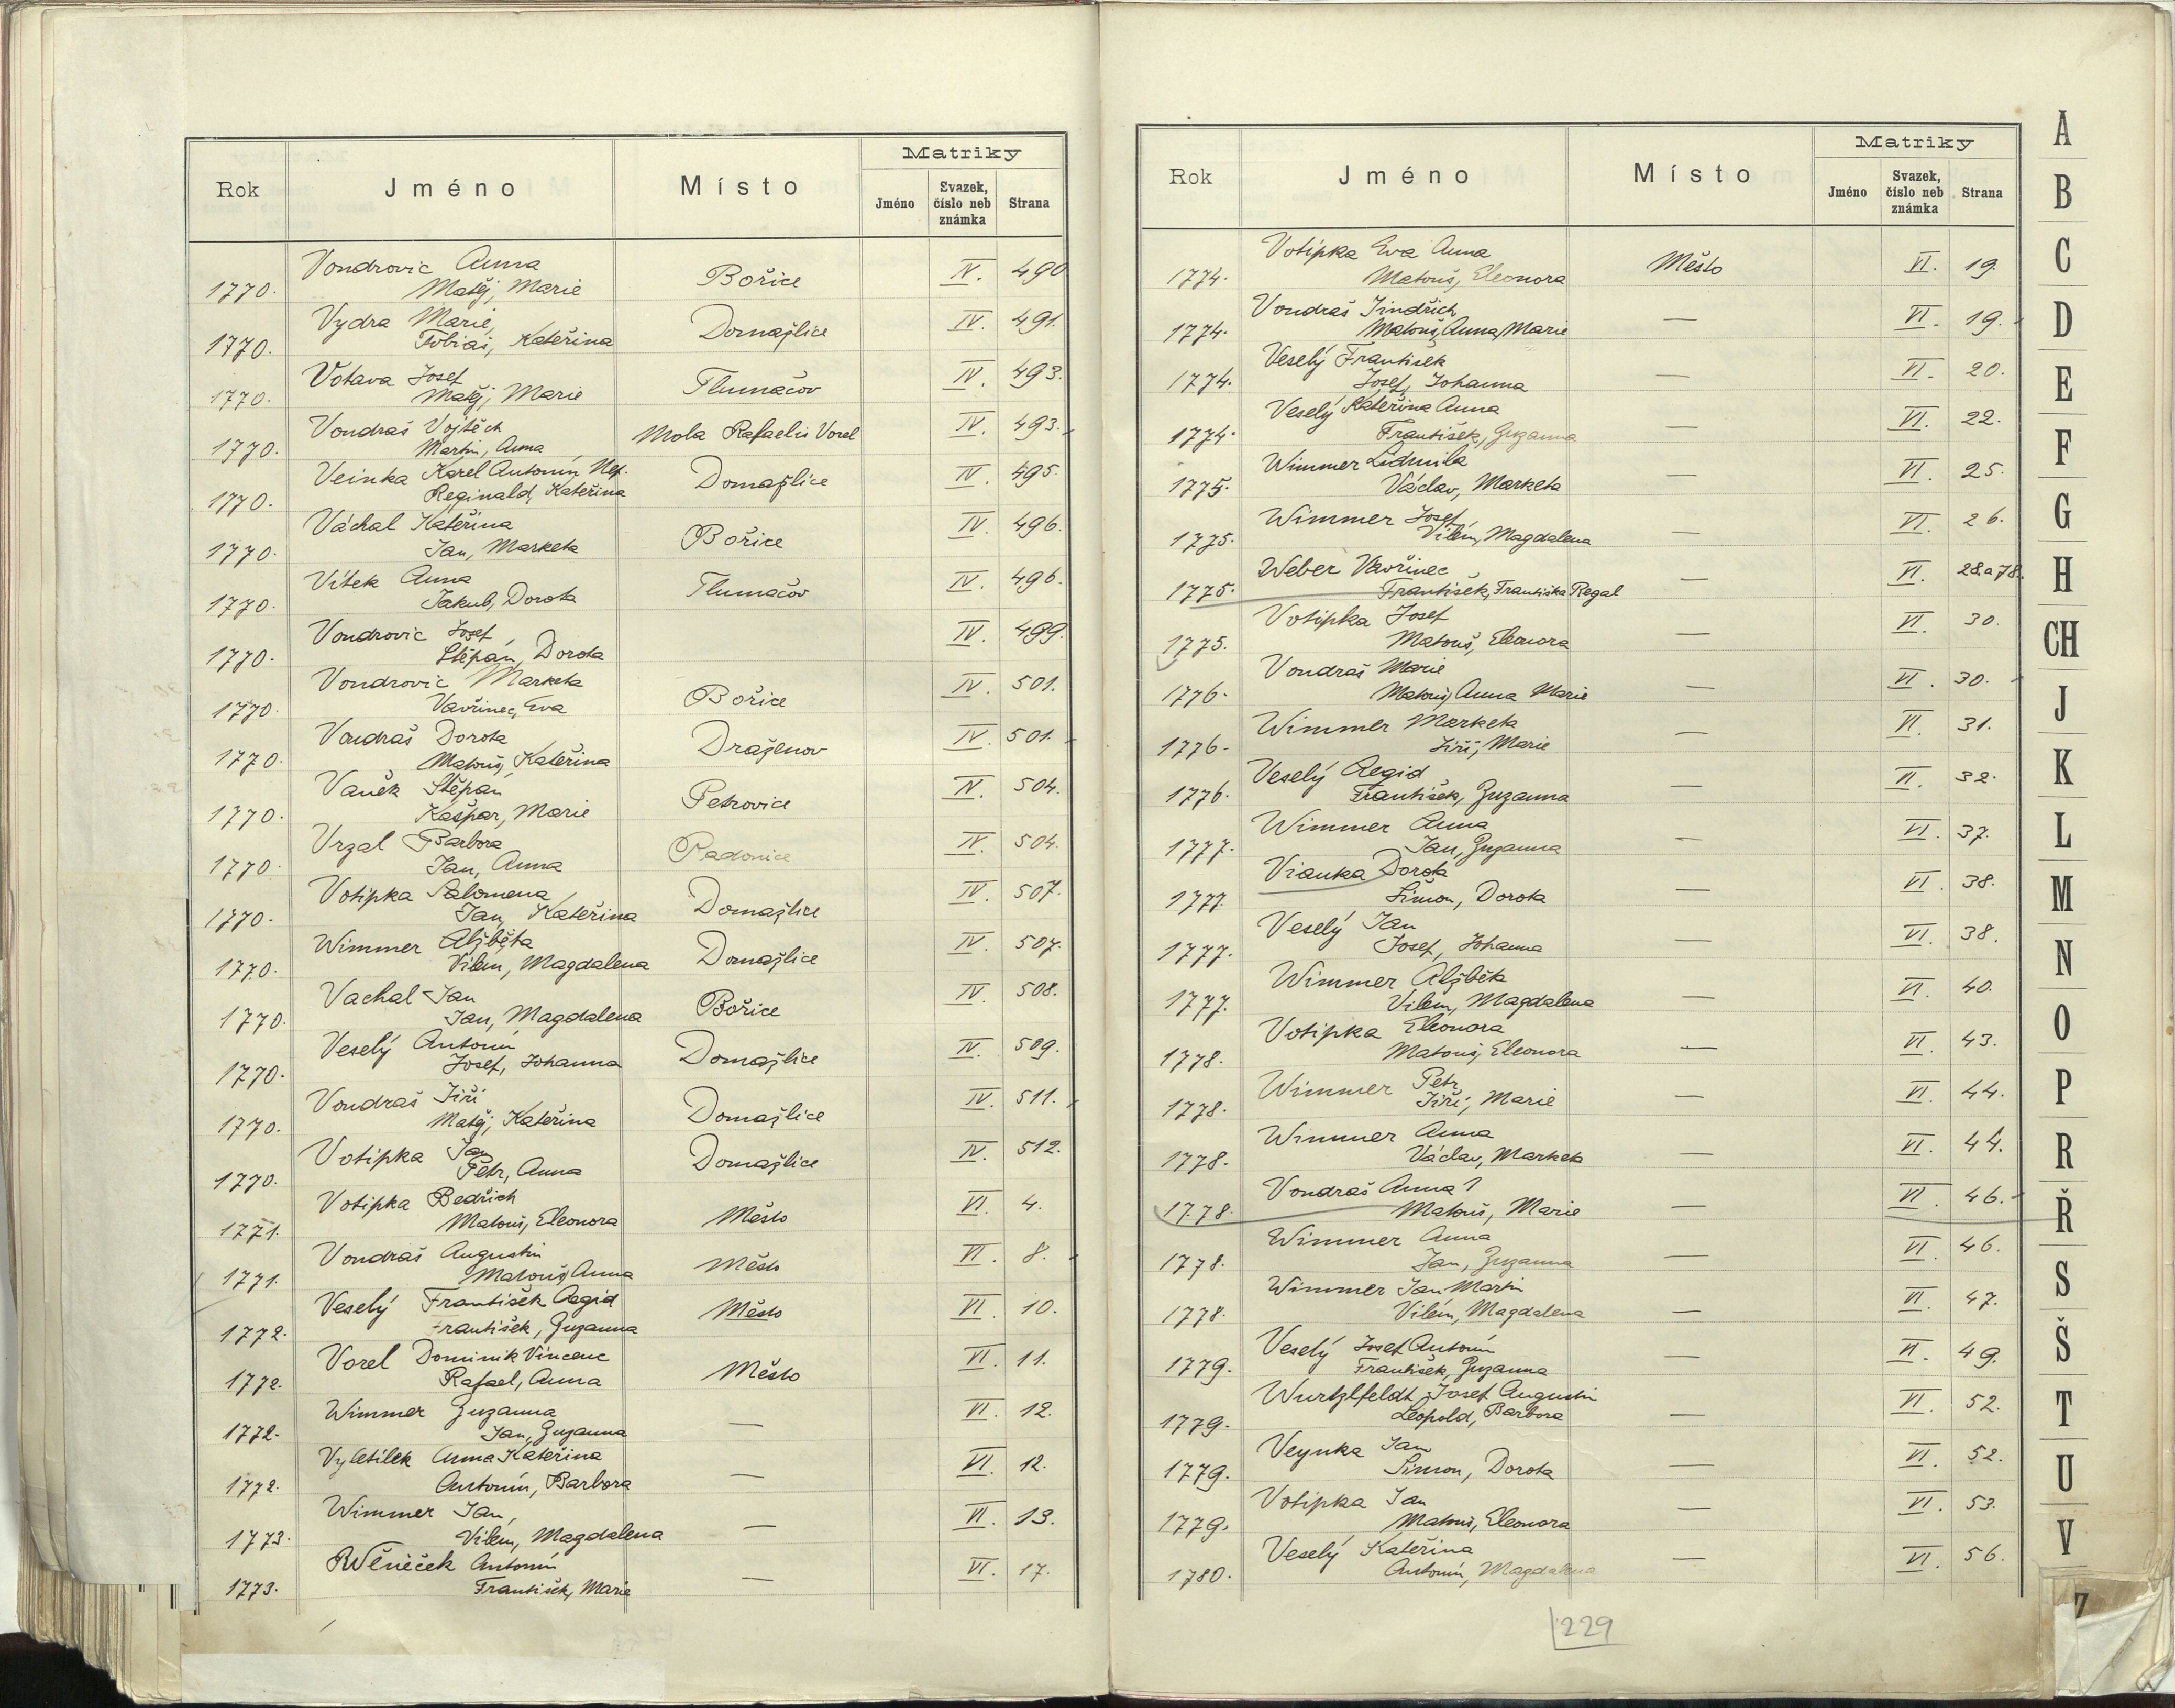 Rok Jméno Místo Matriky
Jméno Svazek, číslo neb známka Strana
Vondrovic Anna
1770. Matěj, Marie Bořice IV. 490
Vydra Marie,
1770. Tobiáš, Kateřina Domažlice IV. 491.
Votava Josef
1770. Matěj, Marie Tlumačov IV. 493.
Vondraš Vojtěch
1770. Martin, Anna Mola Rafaelis Vorel IV. 493.
Veinka Karel Antonín Nep.
1770. Reginald, Kateřina Domažlice IV. 495.
Váchal Kateřina
1770. Jan, Marketa Bořice IV. 496.
Vítek Anna
1770. Jakub, Dorota Tlumačov IV. 496.
Vondrovic Josef
1770. Štěpán, Dorota IV. 499.
Vondrovic Marketa
1770. Vavřinec, Eva Bořice IV. 501.
Vondraš Dorota
1770. Matouš, Kateřina Draženov IV. 501.
Vaněk Štěpán
1770. Kašpar, Marie Petrovice IV. 504.
Vrzal Barbora
1770. Jan, Anna Padonice IV. 504.
Votipka Salomena
1770. Jan, Kateřina Domažlice IV. 507.
Wimmer Alžběta
1770. Vilém, Magdalena Domažlice IV. 507.
Vachal Jan
1770. Jan, Magdalena Bořice IV. 508.
Veselý Antonín
1770. Josef, Johanna Domažlice IV. 509.
Vondraš Jiří
1770. Matěj, Kateřina Domažlice IV. 511.
Votipka Jan
1770. Petr, Anna Domažlice IV. 512.
Votipka Bedřich
1771. Matouš, Eleonora Město VI. 4.
Vondraš Augustin
1771. Matouš, Anna Město VI. 8.
Veselý František Aegid
1772. František, Zuzanna Město VI. 10.
Vorel Dominik Vincenc
1772. Rafael, Anna Město VI. 11.
Wimmer Zuzanna
1772. Jan, Zuzanna — VI. 12.
Vyletílek Anna Kateřina
1772. Antonín, Barbora — VI. 12.
Wimmer Jan,
1773. Vilém, Magdalena — VI. 13.
Věneček Antonín
1773. František, Marie — VI. 17.
Rok Jméno Místo Matriky
Jméno Svazek, číslo neb známka Strana
Votipka Eva Anna
1774. Matouš, Eleonora Město VI. 19.
Vondraš Jindřich
1774. Matouš, Anna Marie — VI. 19.
Veselý František
1774. Josef, Johanna — VI. 20.
Veselý Kateřina Anna
1774. František, Zuzanna — VI. 22.
Wimmer Lidmila
1775. Václav, Marketa — VI. 25.
Wimmer Josef
1775. Vilém, Magdalena VI. 26.
Weber Vavřinec
1775. František, Františka Regal — VI. 28 a 78.
Votipka Josef
1775. Matouš, Eleonora — VI. 30.
Vondraš Marie
1776. Matouš, Anna Marie — VI. 30.
Wimmer Marketa
1776. Jiří, Marie — VI. 31.
Veselý Aegid
1776. František, Zuzanna — VI. 32.
Wimmer Anna
1777. Jan, Zuzanna — VI. 37.
Vianka Dorota
1777. Šimon, Dorota — VI. 38.
Veselý Jan
1777. Josef, Johanna — VI. 38.
Wimmer Alžběta
1777. Vilém, Magdalena — VI. 40.
Votipka Eleonora
1778. Matouš, Eleonora — VI. 43.
Wimmer Petr
1778. Jiří, Marie — VI. 44.
Wimmer Anna
1778. Václav, Marketa — VI. 44.
Vondraš Anna
1778. Matouš, Marie — VI. 46.
Wimmer Anna
1778. Jan, Zuzanna — VI. 46.
Wimmer Jan Martin
1778. Vilém, Magdalena — VI. 47.
Veselý Josef Antonín
1779. František, Zuzanna — VI. 49.
Wurtzlfeldt Josef Augustin
1779. Leopold, Barbora — VI. 52.
Veynka Jan
1779. Šimon, Dorota — VI. 52.
Votipka Jan
1779. Matouš, Eleonora — VI. 53.
Veselý Kateřina
1780. Antonín, Magdalena — VI. 56.
229
A
B
C
D
E
F
G
H
CH
J
K
L
M
N
O
P
R
Ř
S
Š
T
U
V
Z